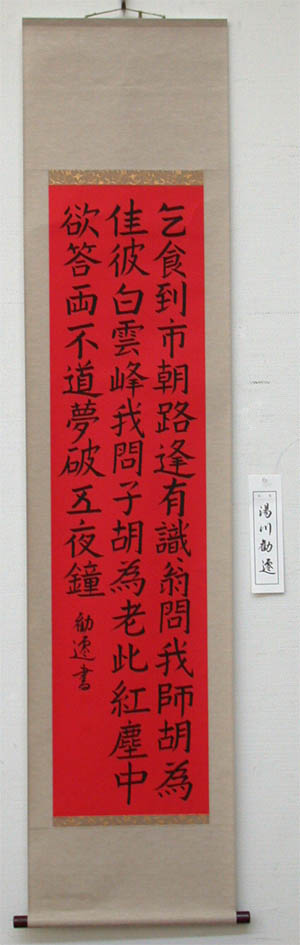 乞食到市朝路逢有識翁問我師胡為
佳彼白雲峰我問子胡為老此紅塵中
欲答両不道夢破五夜鐘
勧遷書
湯川勧遷